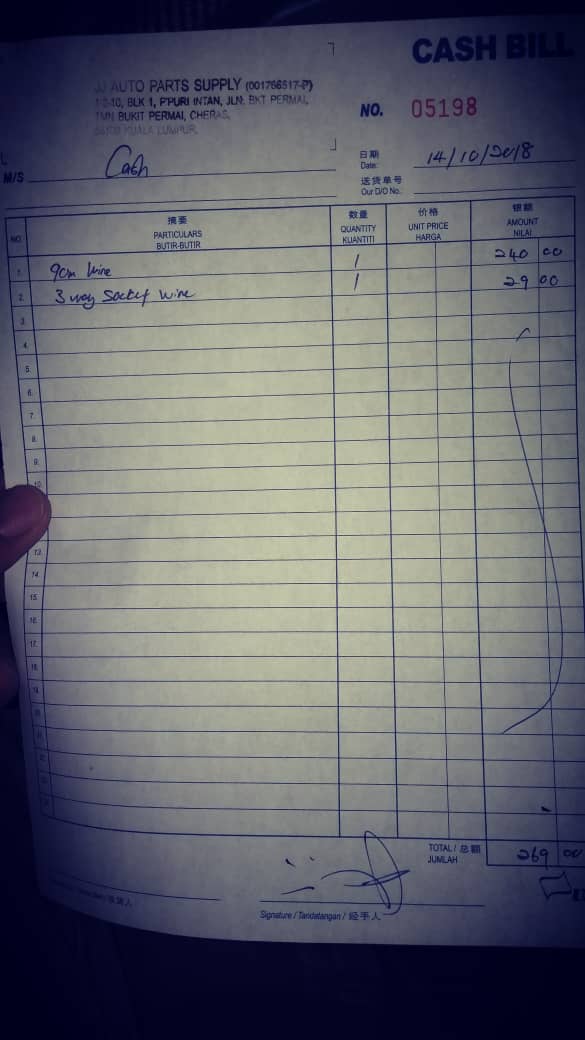 CASH BILL
JJ AUTO PARTS SUPPLY (001766517-P)
BLK 1, P'PURI INTAN, JLN. BKT PERMAI,
TMN BUKIT PERMAI, CHERAS,
KUALA LUMPUR.
NO. 05198
M/S Cash
日期
Date: 14/10/2018
送货单号
Our D/O No.:
NO. 摘要 PARTICULARS BUTIR-BUTIR 数量 QUANTITY KUANTITI 价格 UNIT PRICE HARGA 银额 AMOUNT NILAI
1. 9cm Wire 1 240 00
2. 3 way Socket Wire 1 29 00
3.
4.
5.
6.
7.
8.
9.
10.
13.
14.
15.
16.
17.
18.
19.
20.
TOTAL / 总额
JUMLAH 269 00
Signature / Tandatangan / 经手人